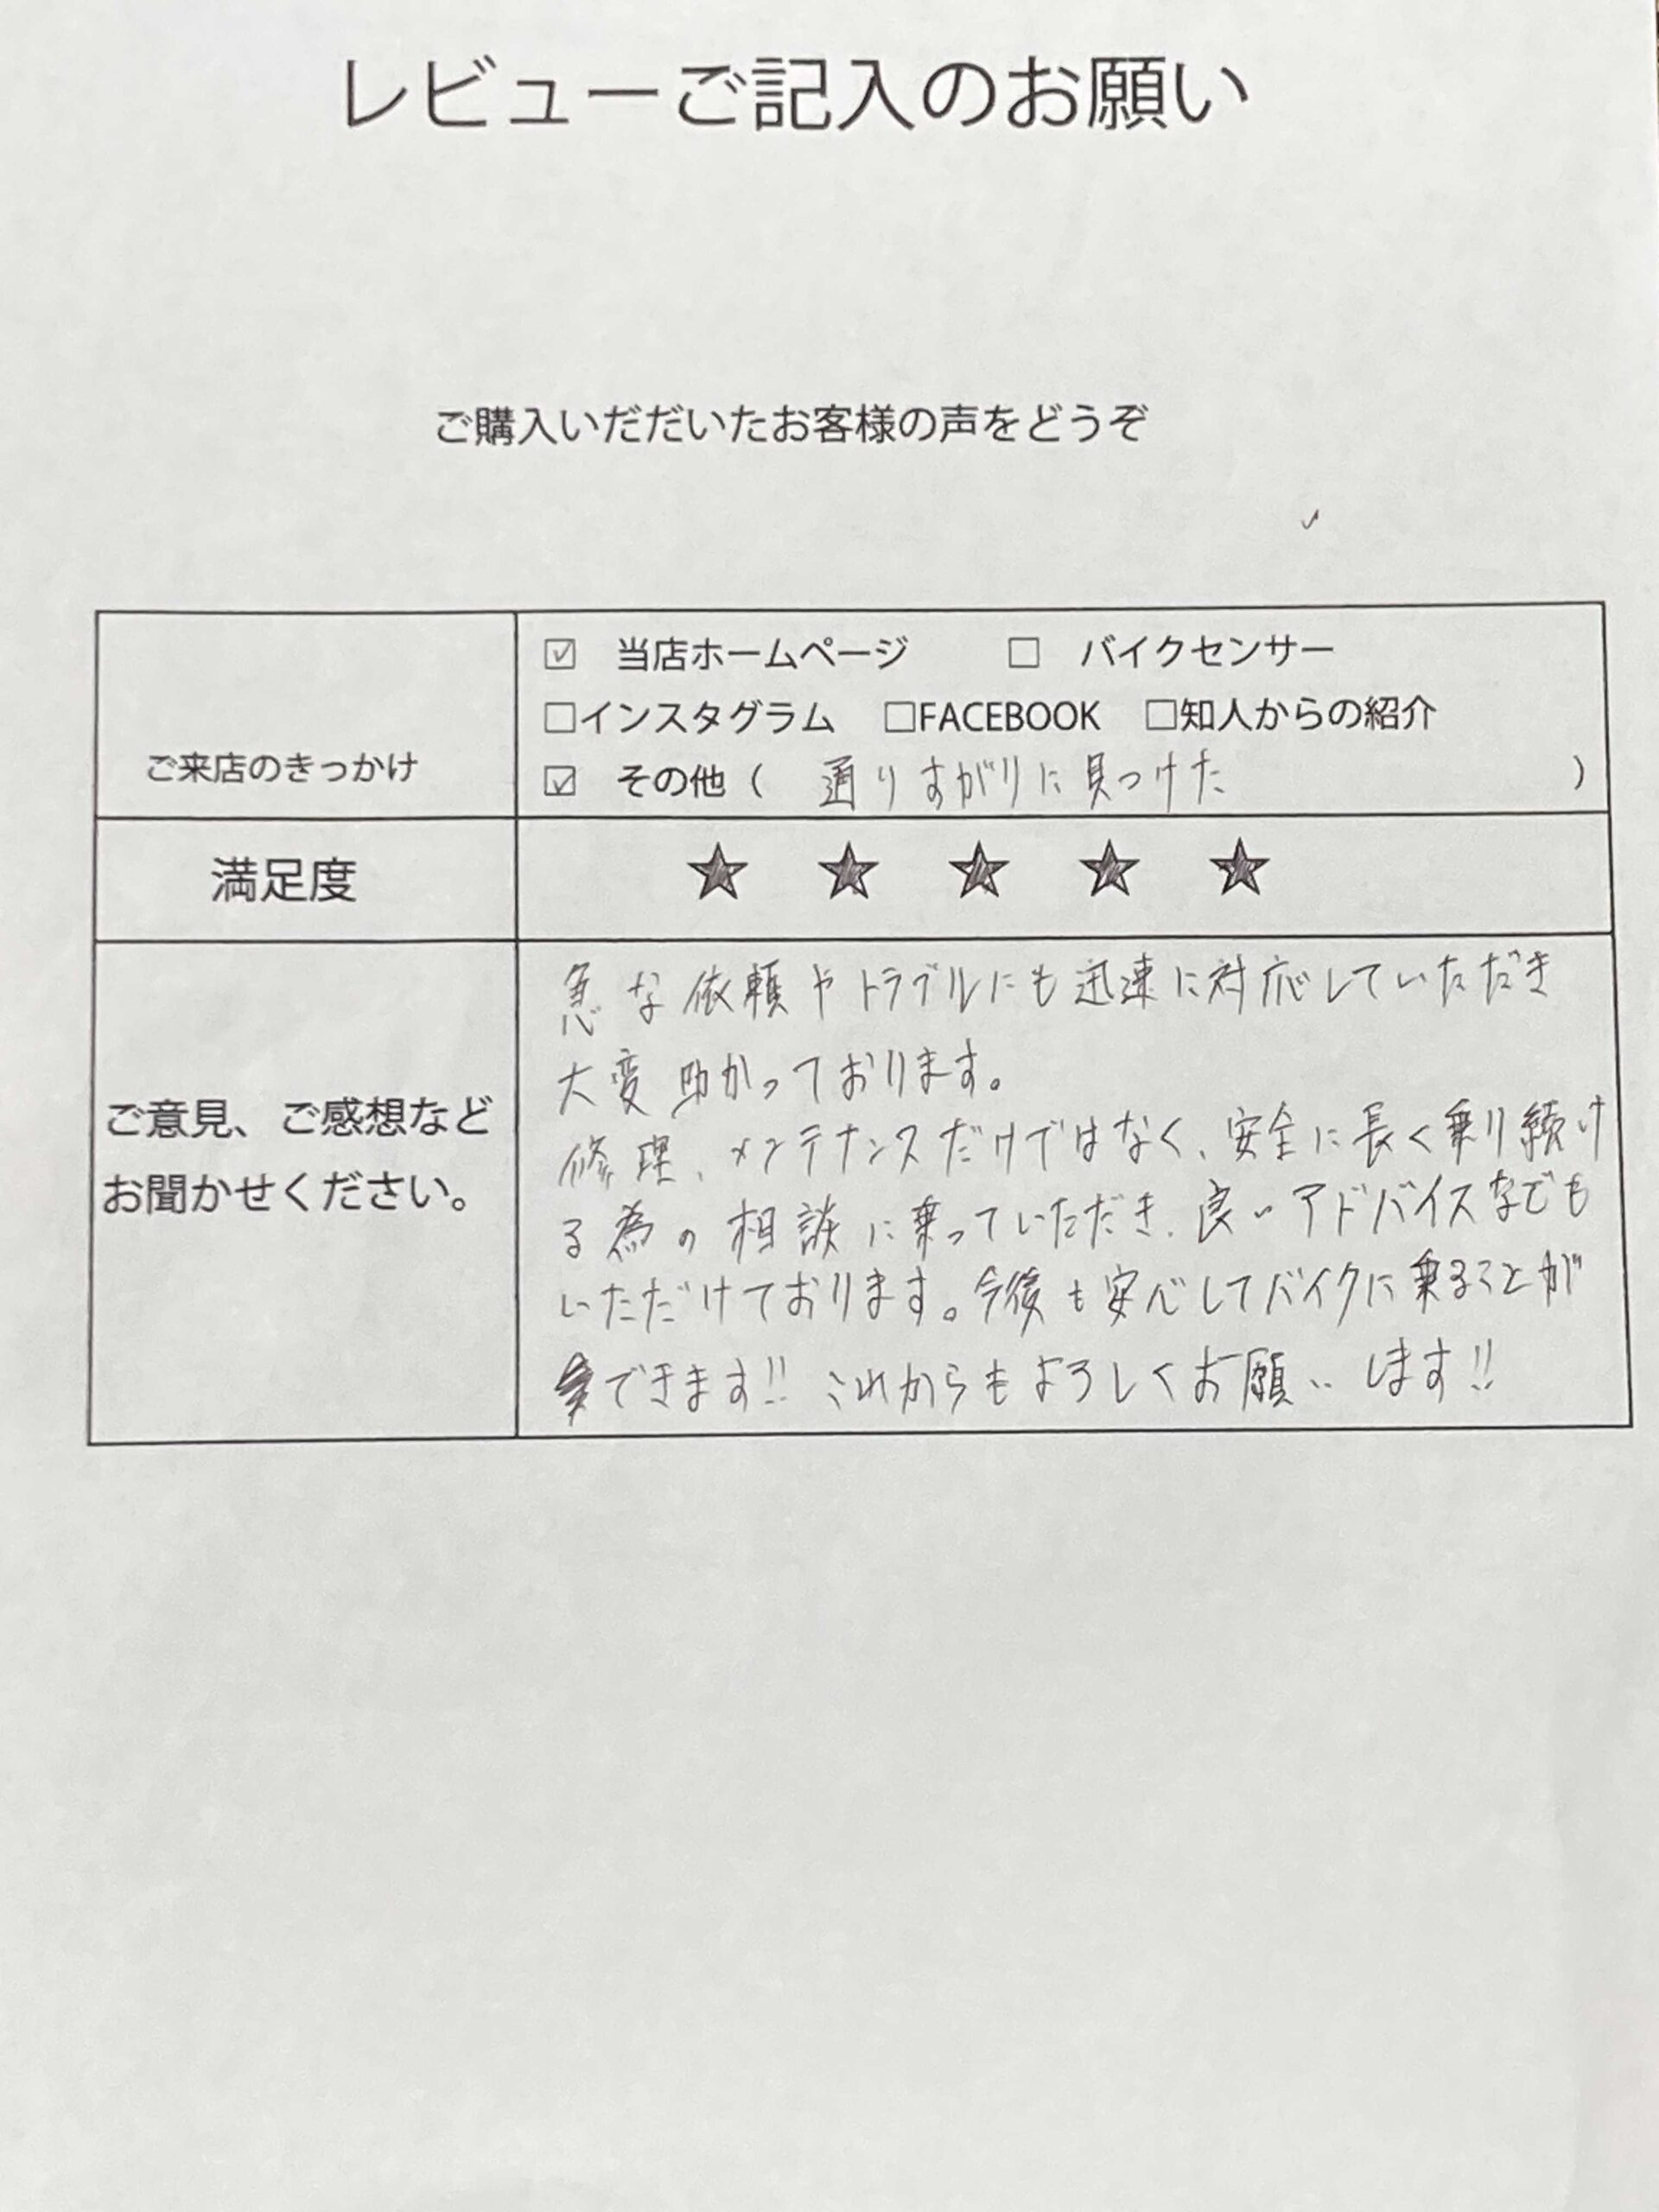 レビューご記入のお願い
ご購入いだだいたお客様の声をどうぞ
ご来店のきっかけ
☑ 当店ホームページ □ バイクセンサー
□インスタグラム □FACEBOOK □知人からの紹介
☑ その他（ 通りすがりに見つけた ）
満足度
★ ★ ★ ★ ★
ご意見、ご感想など
お聞かせください。
急な依頼やトラブルにも迅速に対応していただき
大変助かっております。
修理、メンテナンスだけではなく、安全に長く乗り続け
る為の相談に乗っていただき、良いアドバイスなども
いただけております。今後も安心してバイクに乗ることが
できます!! これからもよろしくお願いします!!